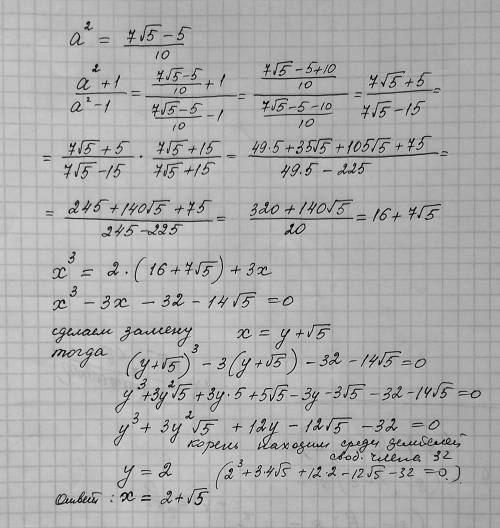 a² = (7√5 − 5)/10
(a² + 1)/(a² − 1) = ((7√5 − 5)/10 + 1)/((7√5 − 5)/10 − 1) = ((7√5 − 5 + 10)/10)/((7√5 − 5 − 10)/10) = (7√5 + 5)/(7√5 − 15) =
= (7√5 + 5)/(7√5 − 15) · (7√5 + 15)/(7√5 + 15) = (49·5 + 35√5 + 105√5 + 75)/(49·5 − 225) =
= (245 + 140√5 + 75)/(245 − 225) = (320 + 140√5)/20 = 16 + 7√5
x³ = 2·(16 + 7√5) + 3x
x³ − 3x − 32 − 14√5 = 0
сделаем замену x = y + √5
тогда
(y + √5)³ − 3(y + √5) − 32 − 14√5 = 0
y³ + 3y²√5 + 3y·5 + 5√5 − 3y − 3√5 − 32 − 14√5 = 0
y³ + 3y²√5 + 12y − 12√5 − 32 = 0
корень находим среди делителей
своб. члена 32
y = 2 (2³ + 3·4√5 + 12·2 − 12√5 − 32 = 0.)
Ответ: x = 2 + √5